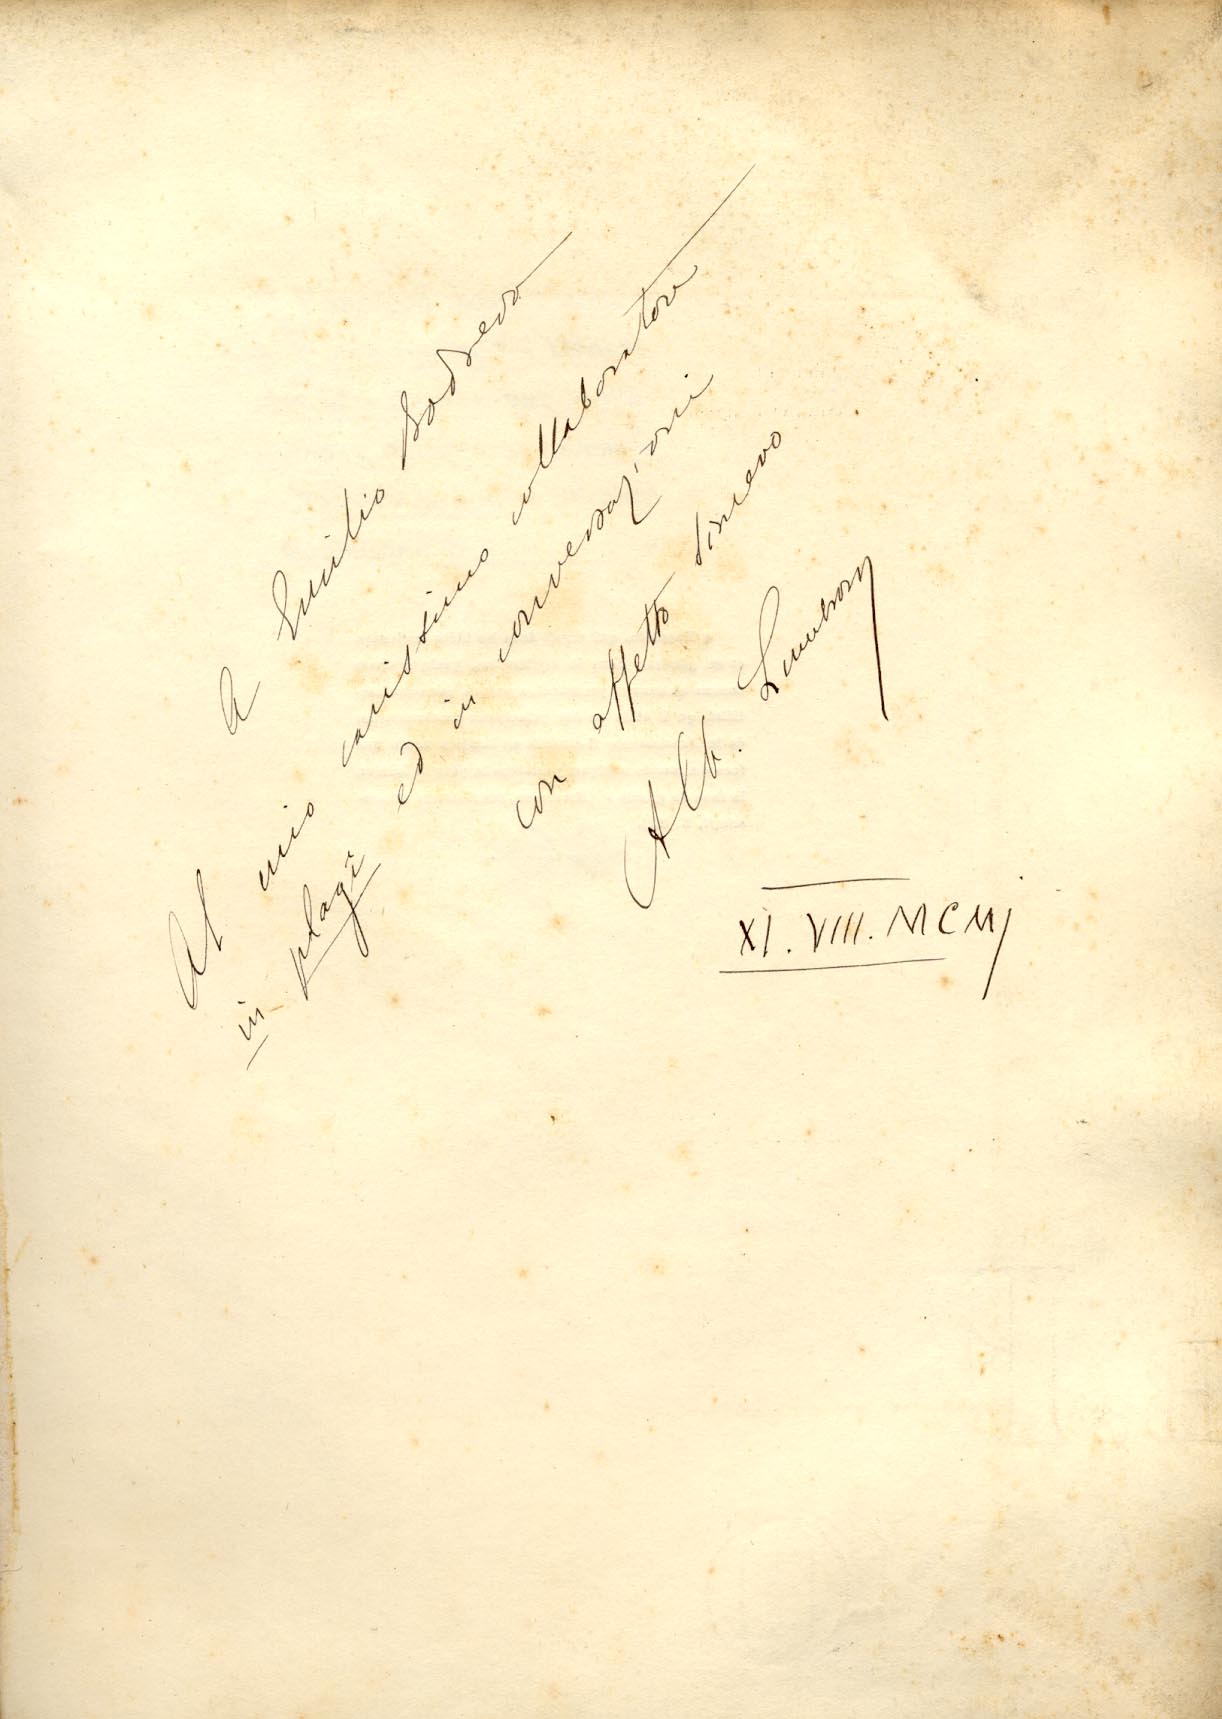 A Emilio Bodrero
Al mio carissimo collaboratore
in plagî ed in conversazioni
con affetto sincero
Alb. Lumbroso
XI. VIII. MCMI